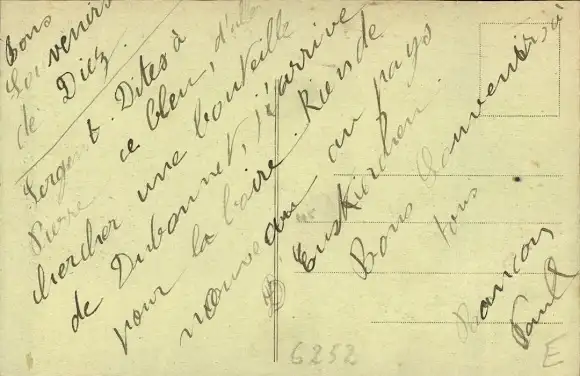 Bons
Souvenirs
de Diez
Sergent. Dites à
Pierre ce bleu, d'aller
chercher une bouteille
de Dubonnet, j'arrive
pour la boire. Rien de
nouveau au pays
Euskirchen.
Bons Souvenirs à
tous
Paul
6252
E